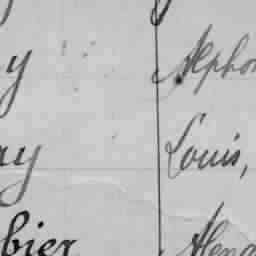 y Alphon
ay Louis,
bier Henr